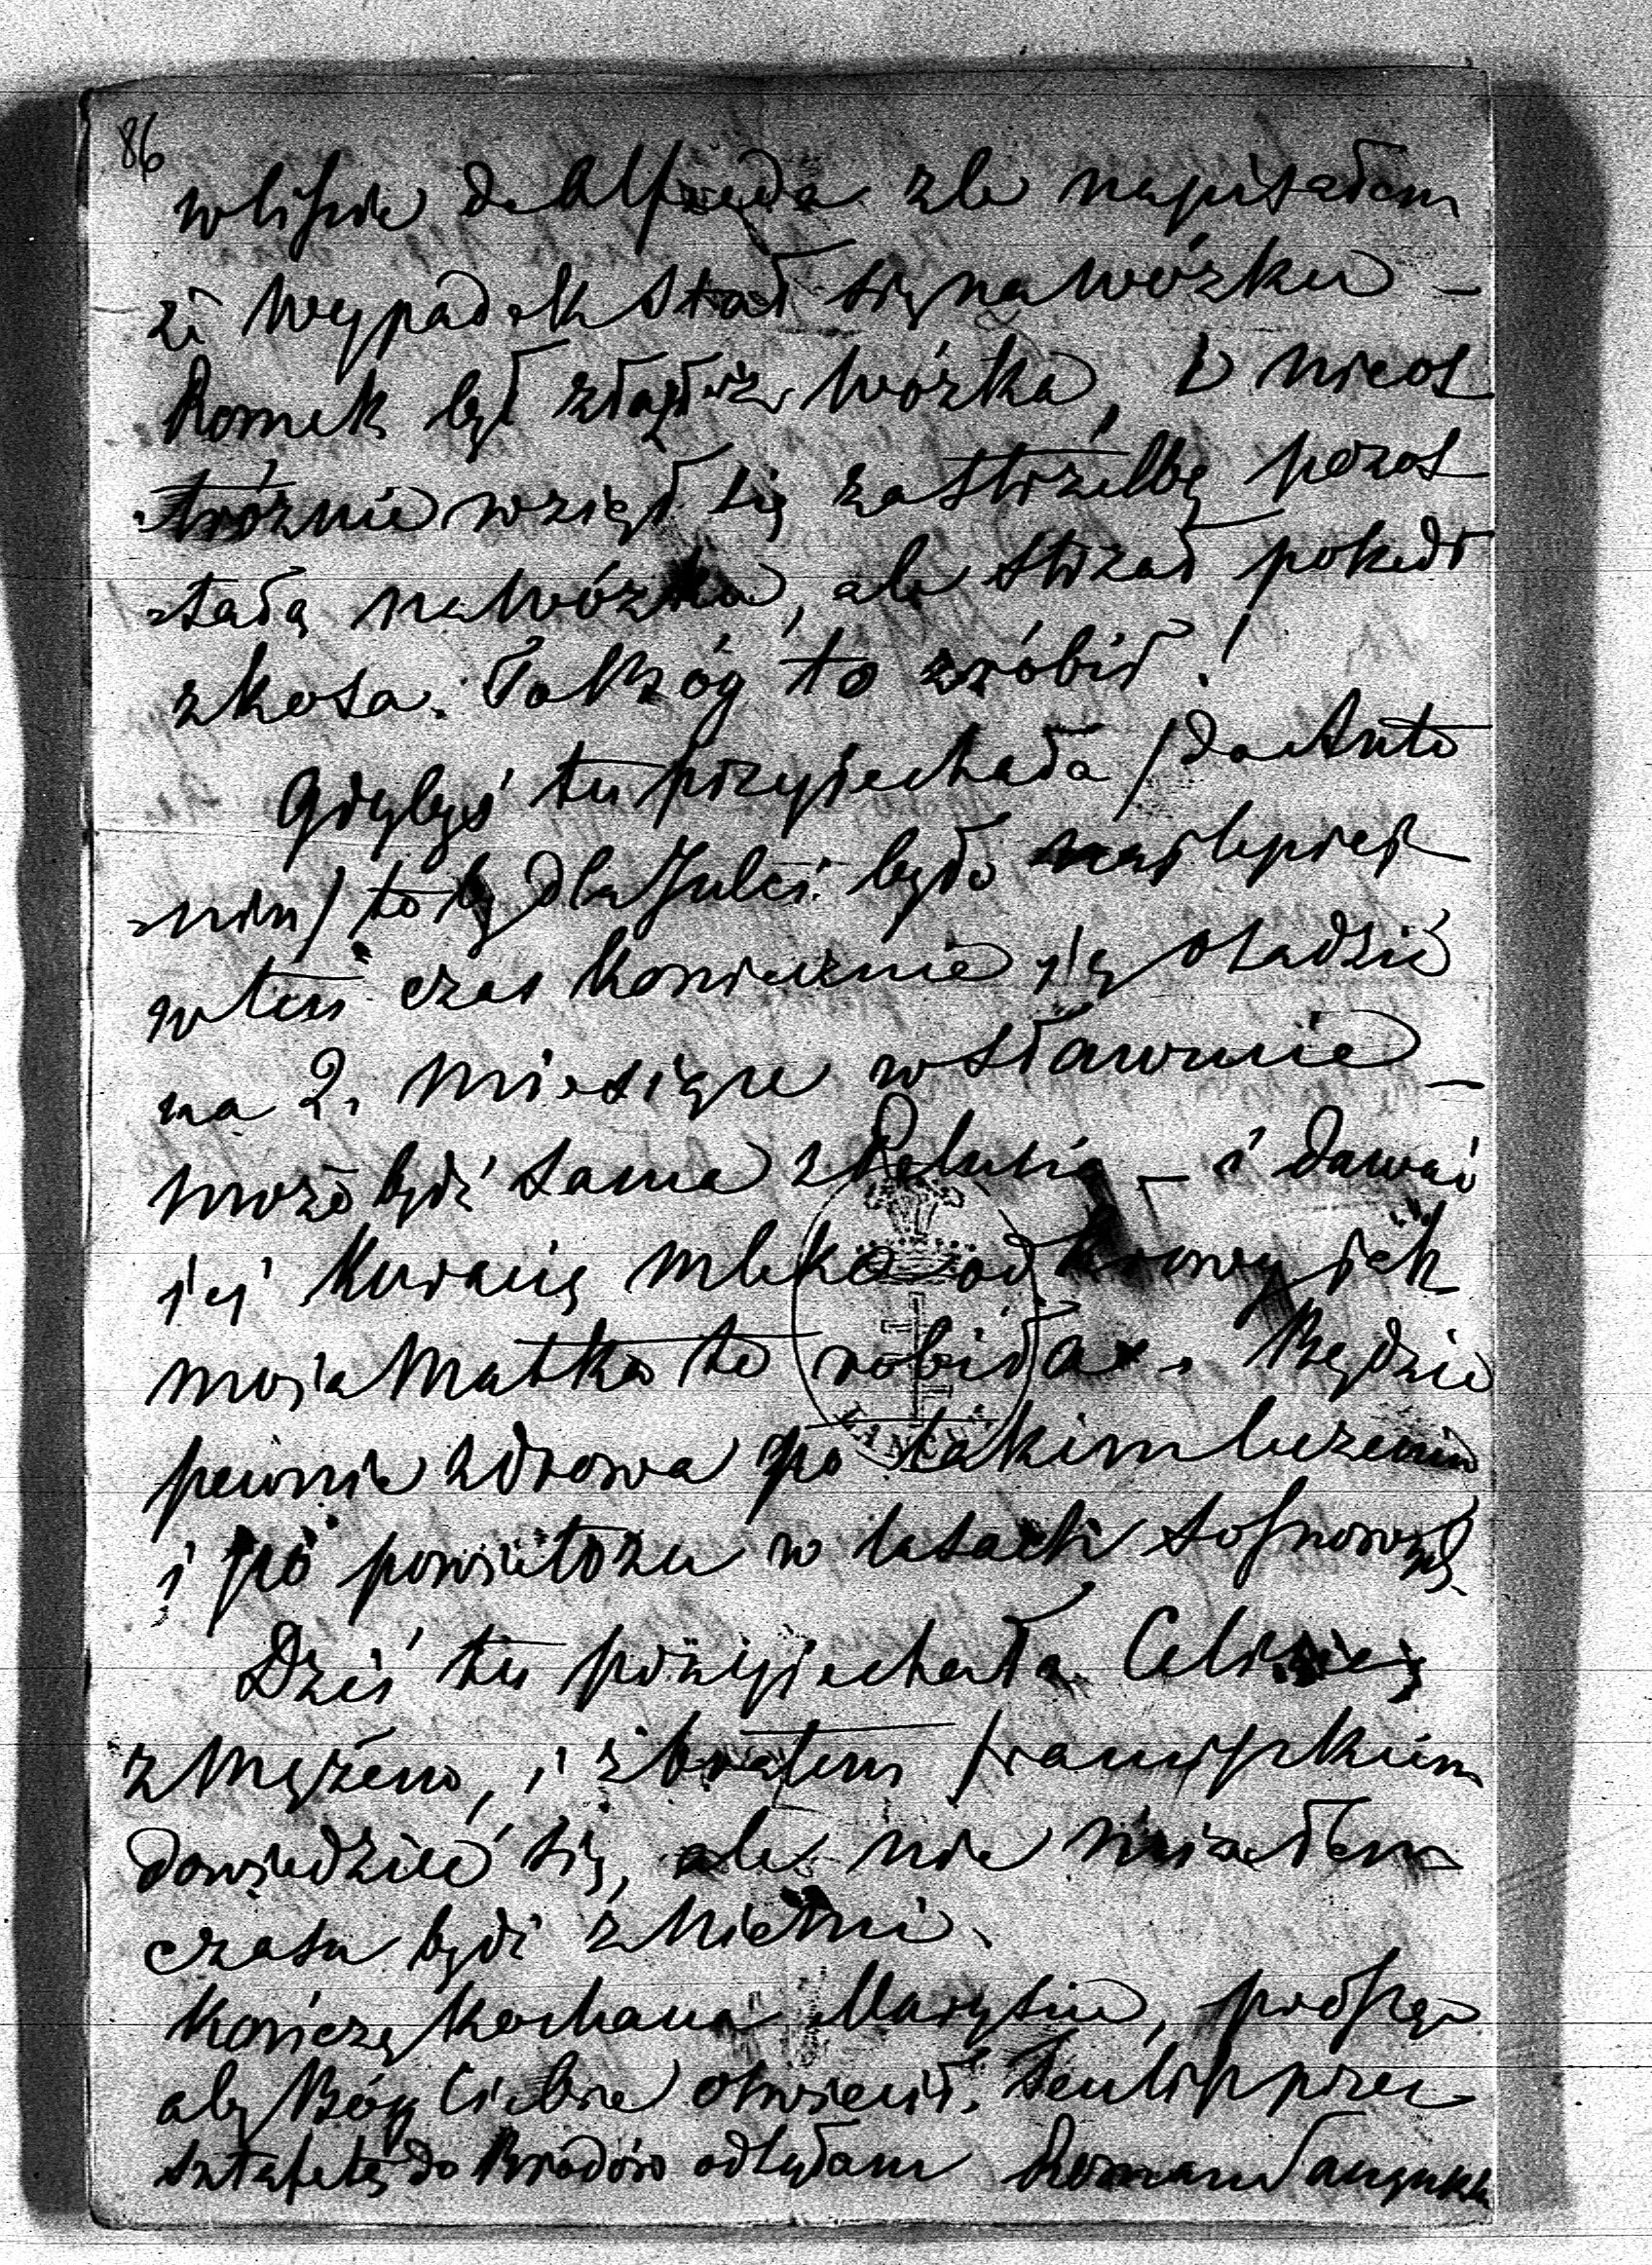 86
w liście do Alfreda źle napisałem
że wypadek stał się na wózku –
Romek był zlazł z wózka, i nieos
trożnie wziął się za strzelbę pozos
tałą na wózku, ale strzał pokedł
zkosa. Tak Bóg to zrobił!
Gdybyś tu przyjechała /do Anto
nin/ to by dla Julci było najlepiej
w ten czas koniecznie ją osadzić
na 2. miesiące w Sławucie –
może być sama z Pelusią – i dawać
jej kuracię mleka od krowy jak
moja Matka to robiła. Będzie
pewnie zdrowa po takim leczeniu
i po powietrzu w lasach sosnowych
Dziś tu przyjechała
z mężem, i z bratem
dowiedzieć się, ale nie miałem
czasu być z niemi.
Kończę kochana Marysiu, proszę
aby Bóg Ciebie oświecił. Ten list przez
sztafetę do Brodów odsyłam Roman Sanguszko